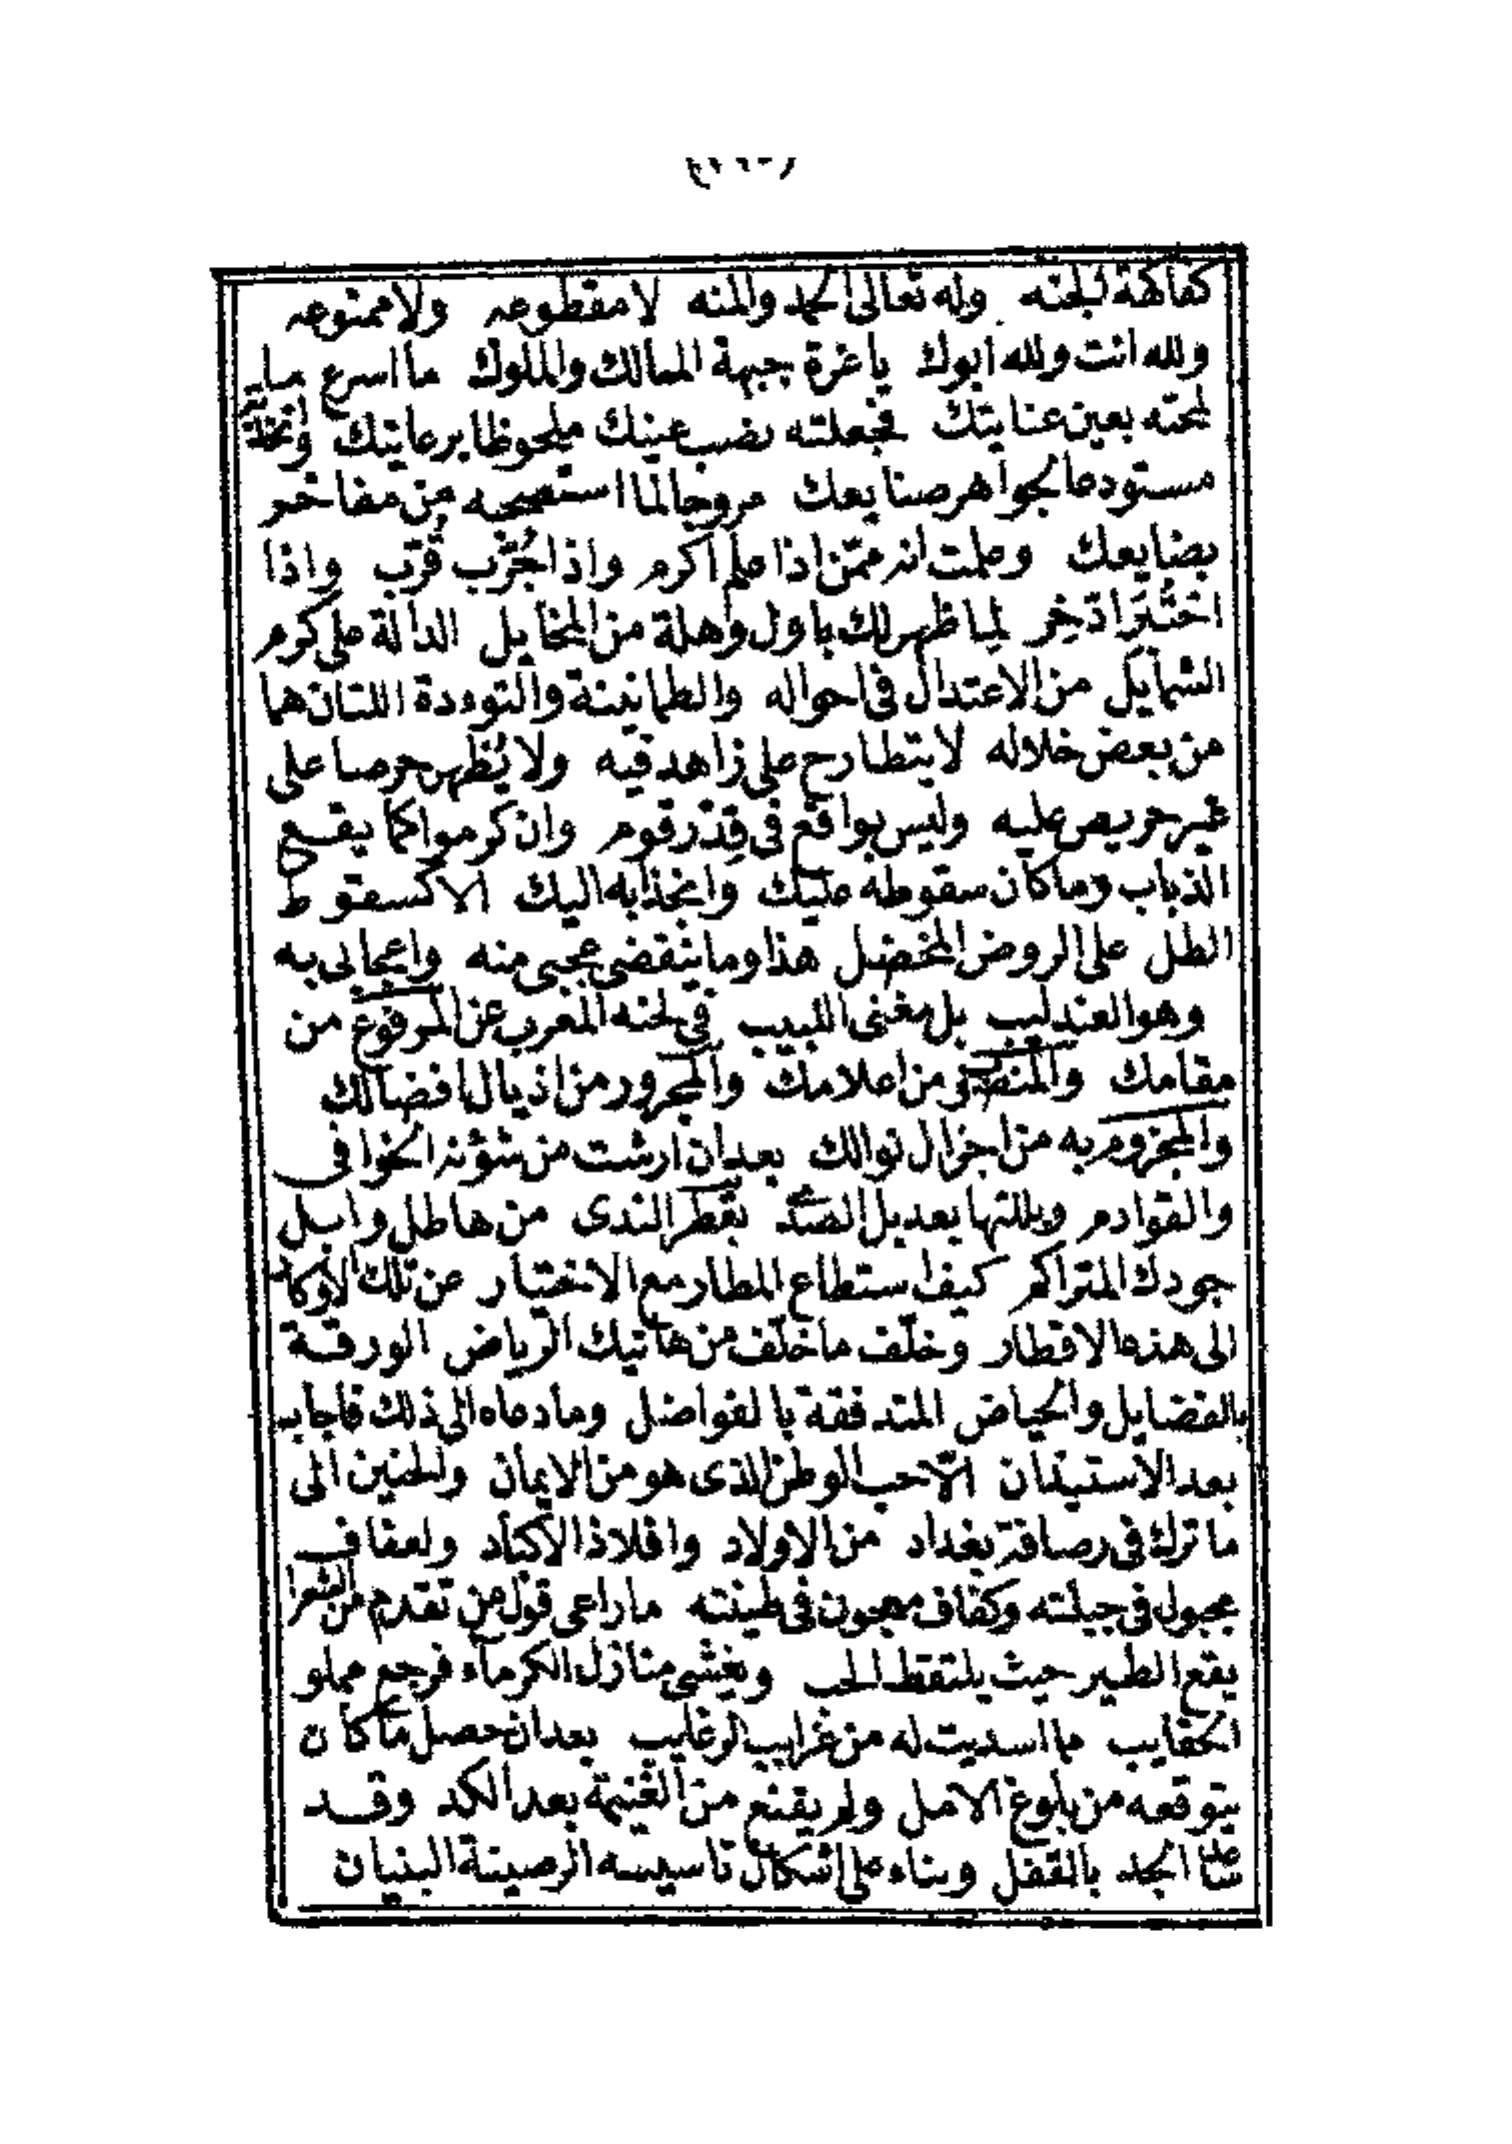 كفاكهة الجنه وله تعالى الحمد والمنه لا مقطوعه ولا ممنوعه
ولله انت ولله أبوك يا غرة جبهة الممالك والملوك ما اسرع ما
لمحته بعين عنايتك فجعلته نصب عينك ملحوظا برعايتك واتخذته
مستودعا لجواهر صنايعك مروجا لما استصحبه من مفاخر
بضايعك وعلمت انه ممّن اذا علم أكرم واذا جُرّب قُرّب واذا
اختُبِر ادّخِر لما ظهر لك باول وهلة من المخايل الدالة على كرم
الشمايل من الاعتدال فى احواله والطمانينة والتوءدة اللتان هما
من بعض خلاله لا يتطارح على زاهد فيه ولا يُظهر حرصا على
غير حريص عليه وليس بواقع فى قِدْر قوم وان كرموا كما يقع
الذباب وما كان سقوطه عليك وانجذابه اليك الا كسقوط
الطل على الروض المخضل هذا وما ينقضى عجبى منه واعجابى به
وهو العندليب بل مغنى اللبيب فى لحنه المعرب عن المرفوع من
مقامك والمنصوب من اعلامك والمجرور من اذيال افضالك
والمجزوم به من اجزال نوالك بعد ان ارشت من شؤنه الخوافى
والقوادم وبللتها بعد بل الصدى بقطر الندى من هاطل وابل
جودك المتراكم كيف استطاع المطار مع الاختيار عن تلك الاوكار
الى هذه الاقطار وخلّف ما خلّف من هاتيك الرياض الورقة
بالفضايل والحياض المتدفقة بالفواضل وما دعاه الى ذلك فاجابه
بعد الاستيذان الّا حب الوطن الذى هو من الايمان والحنين الى
ما ترك فى رصافة بغداد من الاولاد وافلاذ الاكباد ولعفاف
مجبول فى جبلته وكفاف معجون فى طينته ما راعى قول من تقدم من الشعرا
يقع الطير حيث يلتقط الحب ويغشى منازل الكرماء فرجع مملو
الحقايب مما اسديت له من غرايب الرغايب بعد ان حصل ما كان
يتوقعه من بلوغ الامل ولم يقنع من الغنيمة بعد الكد وقد
الجد بالقفل وبناء على اشكال تاسيسه الرصينة البنيان